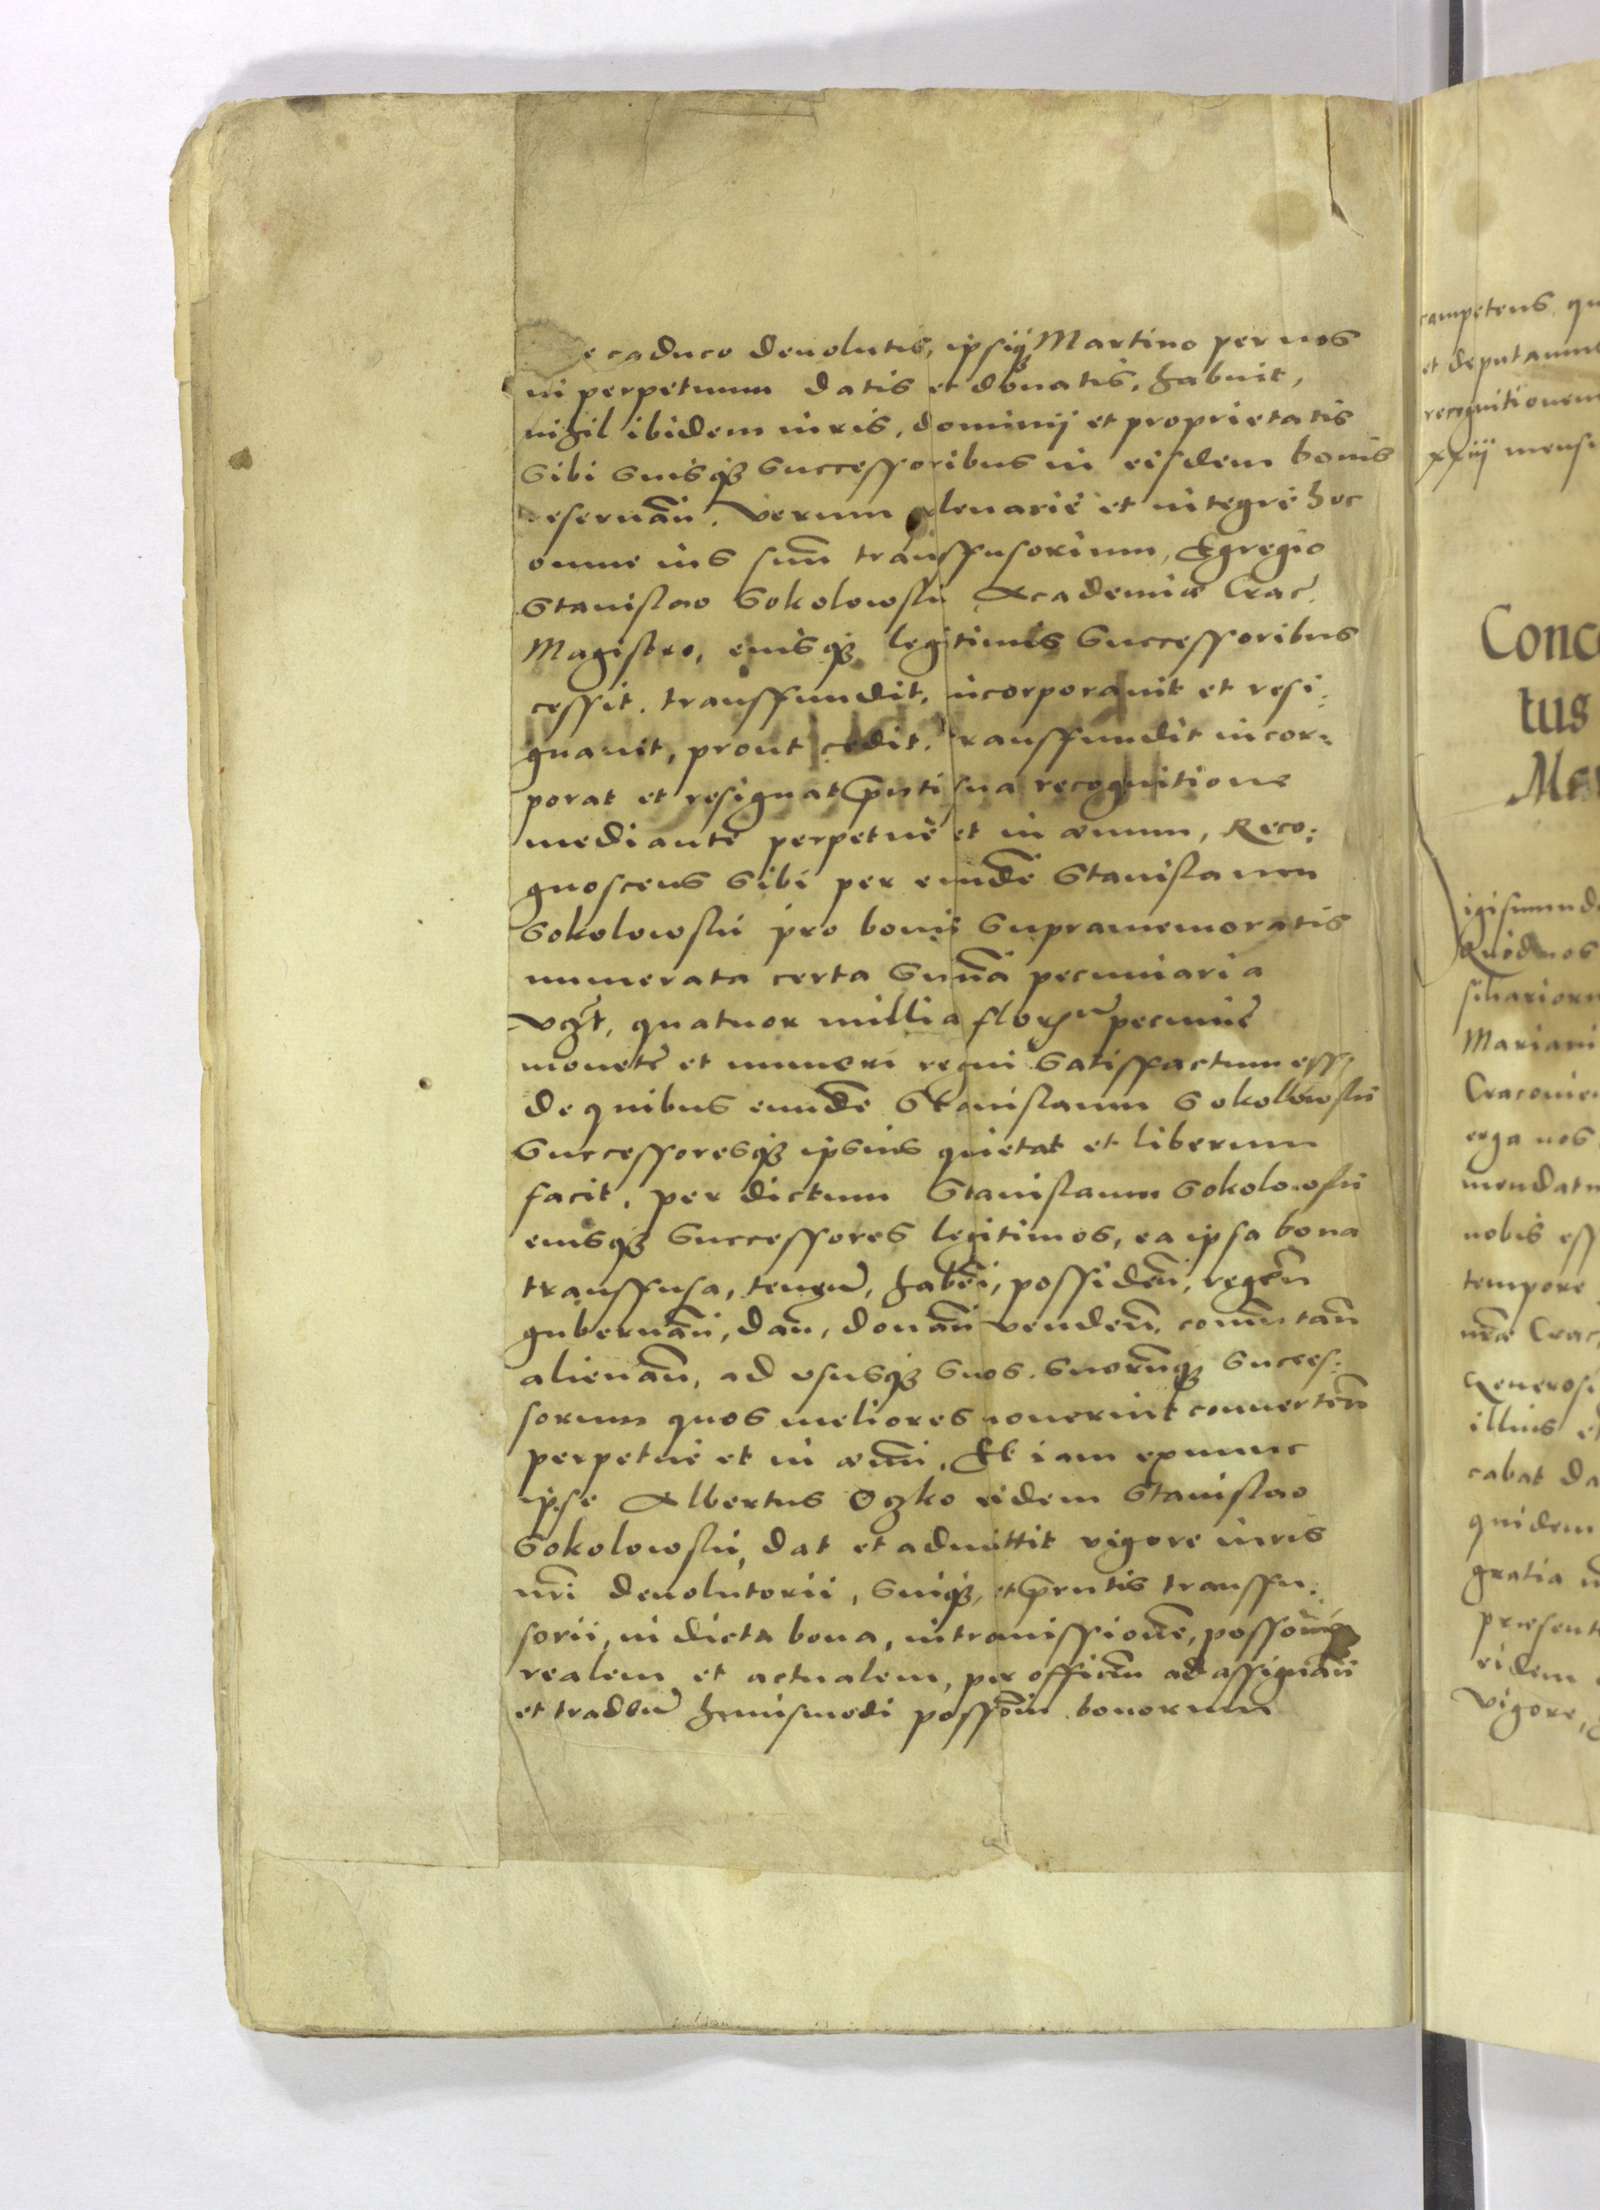 e caduco devolutis, ipsiq Martino per nos
in perpetuum datis et donatis, habuit,
nihil ibidem iuris, dominij et proprietatis
sibi suisq successoribus in eisdem bonis
reservan̄. Verum plenarie et integre hoc
omne ius suū transfusorium, Egregio
Stanislao Sokolowski Academiæ Crac.
Magistro, eiusq legitimis successoribus
cessit, transfundit, incorporavit et resi:
gnavit, prout cedit, transfundit incor:
porat et resignat pn̄ti sua recognitione
mediante perpetue et in ævum, Reco:
gnoscens sibi per eundē Stanislaum
Sokolowski pro bonis supramemoratis
numerata certa sum̄a pecuniaria
vgzt, quatuor millia florn pecuniæ
monetæ et numeri regni satisfactum esse
de quibus eundē Stanislaum Sokolowski
Successoresq ipsius quietat et liberum
facit, per dictum Stanislaum Sokolowski
eiusq successores legitimos, ea ipsa bona
transfusa, tenen̄, haben̄, possiden̄, regen̄
gubernan̄, dan̄, donan̄ venden̄, com̄utan̄
alienan̄, ad ususq suos suorumq succes:
sorum quos meliores noverint converten̄
perpetue et in ævū. Et iam exnunc
ipse Albertus Oczko eidem Stanislao
Sokolowski, dat et admittit vigore iuris
nr̄i devolutorii, suiq, et pn̄tis transfu:
sorii, in dicta bona, intromissionē, posson̄ē
realem et actualem, per officiū ad assignan̄
et traden̄ huiusmodi possoīn bonorum
competens, qu
et deputamus
recognitionem
xxiij mensi
Conc
tus
Mar
igismund
Quod nos
siliarioru
Mariani
Cracovien
erga nos
mendatu
nobis ess
tempore
nr̄æ Crac
Generosi
illius et
cabat da
quidem
gratia n
præsent
eidem
vigore,